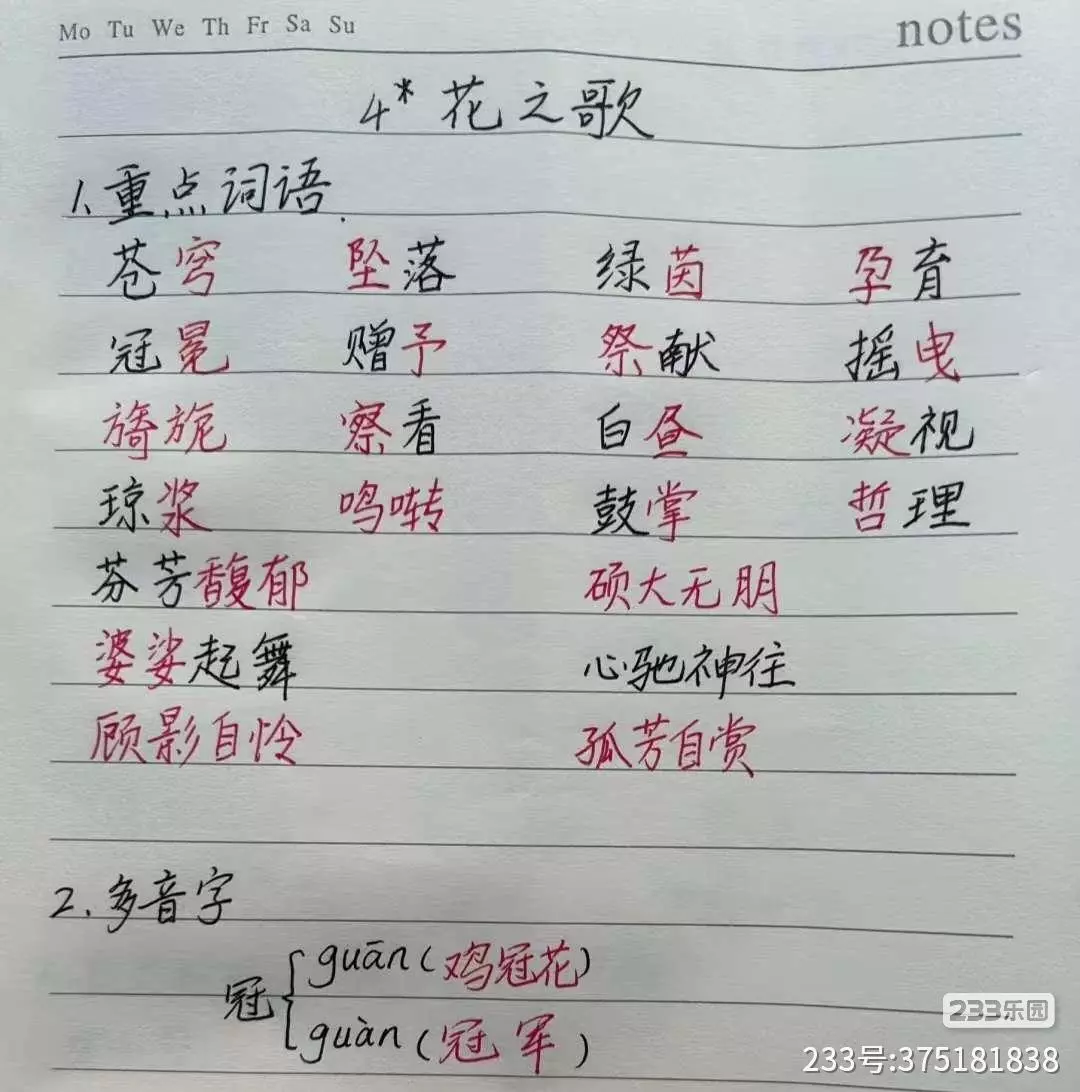 Mo Tu We Th Fr Sa Su notes
4* 花之歌
1、重点词语
苍穹 坠落 绿茵 孕育
冠冕 赠予 祭献 摇曳
旖旎 察看 白昼 凝视
琼浆 鸣啭 鼓掌 哲理
芬芳馥郁 硕大无朋
婆娑起舞 心驰神往
顾影自怜 孤芳自赏
2.多音字
冠
guān(鸡冠花)
guàn(冠军)
233乐园
233号:375181838